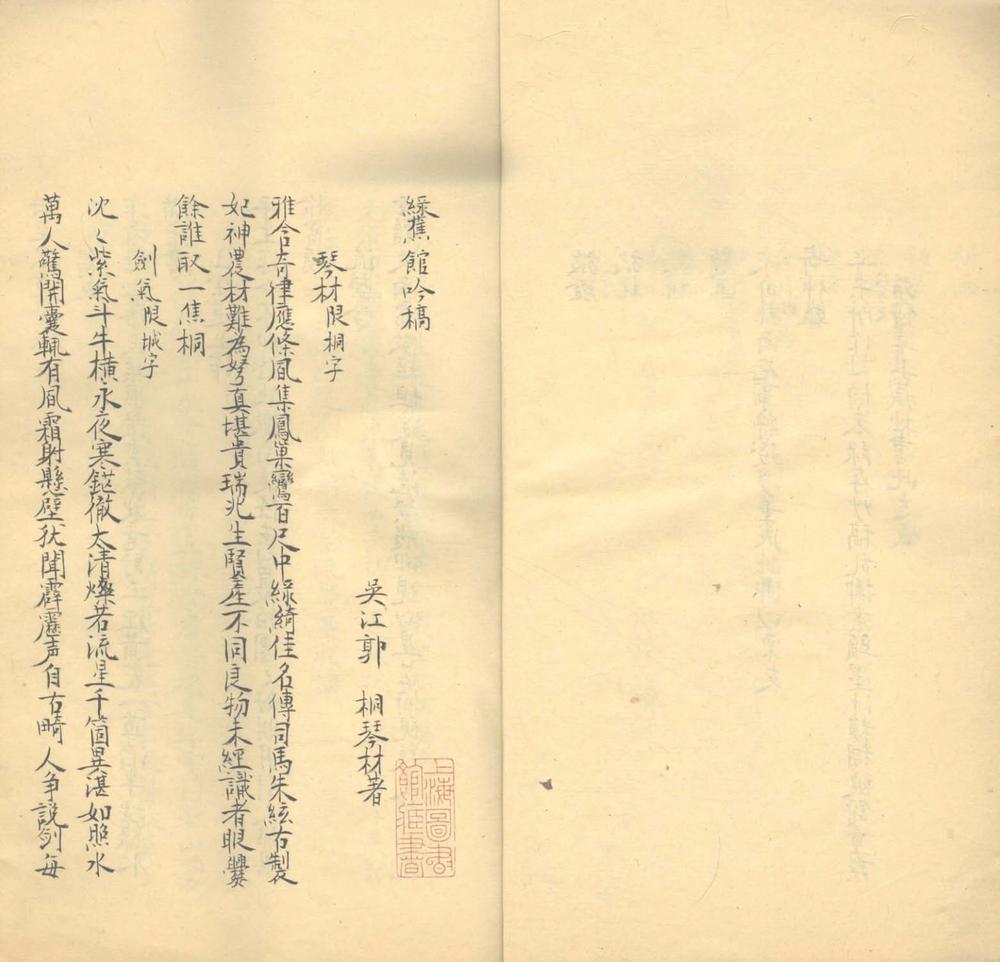 綠蕉館吟稿
吳江郭　桐琴材著
琴材限桐字
雅合奇律應條風集鳳巢鸞百尺中綠綺佳名傳司馬朱絃古製
妃神農材難為弩真堪貴瑞兆生賢產不同良物未經識者眼爨
餘誰取一焦桐
劍氣限城字
沈〻紫氣斗牛橫永夜寒鋩徹太清燦若流星千箇異湛如照水
萬人驚開囊輒有風霜射懸壁犹聞霹靂声自古疇人争說劍每
上海圖書館藏書